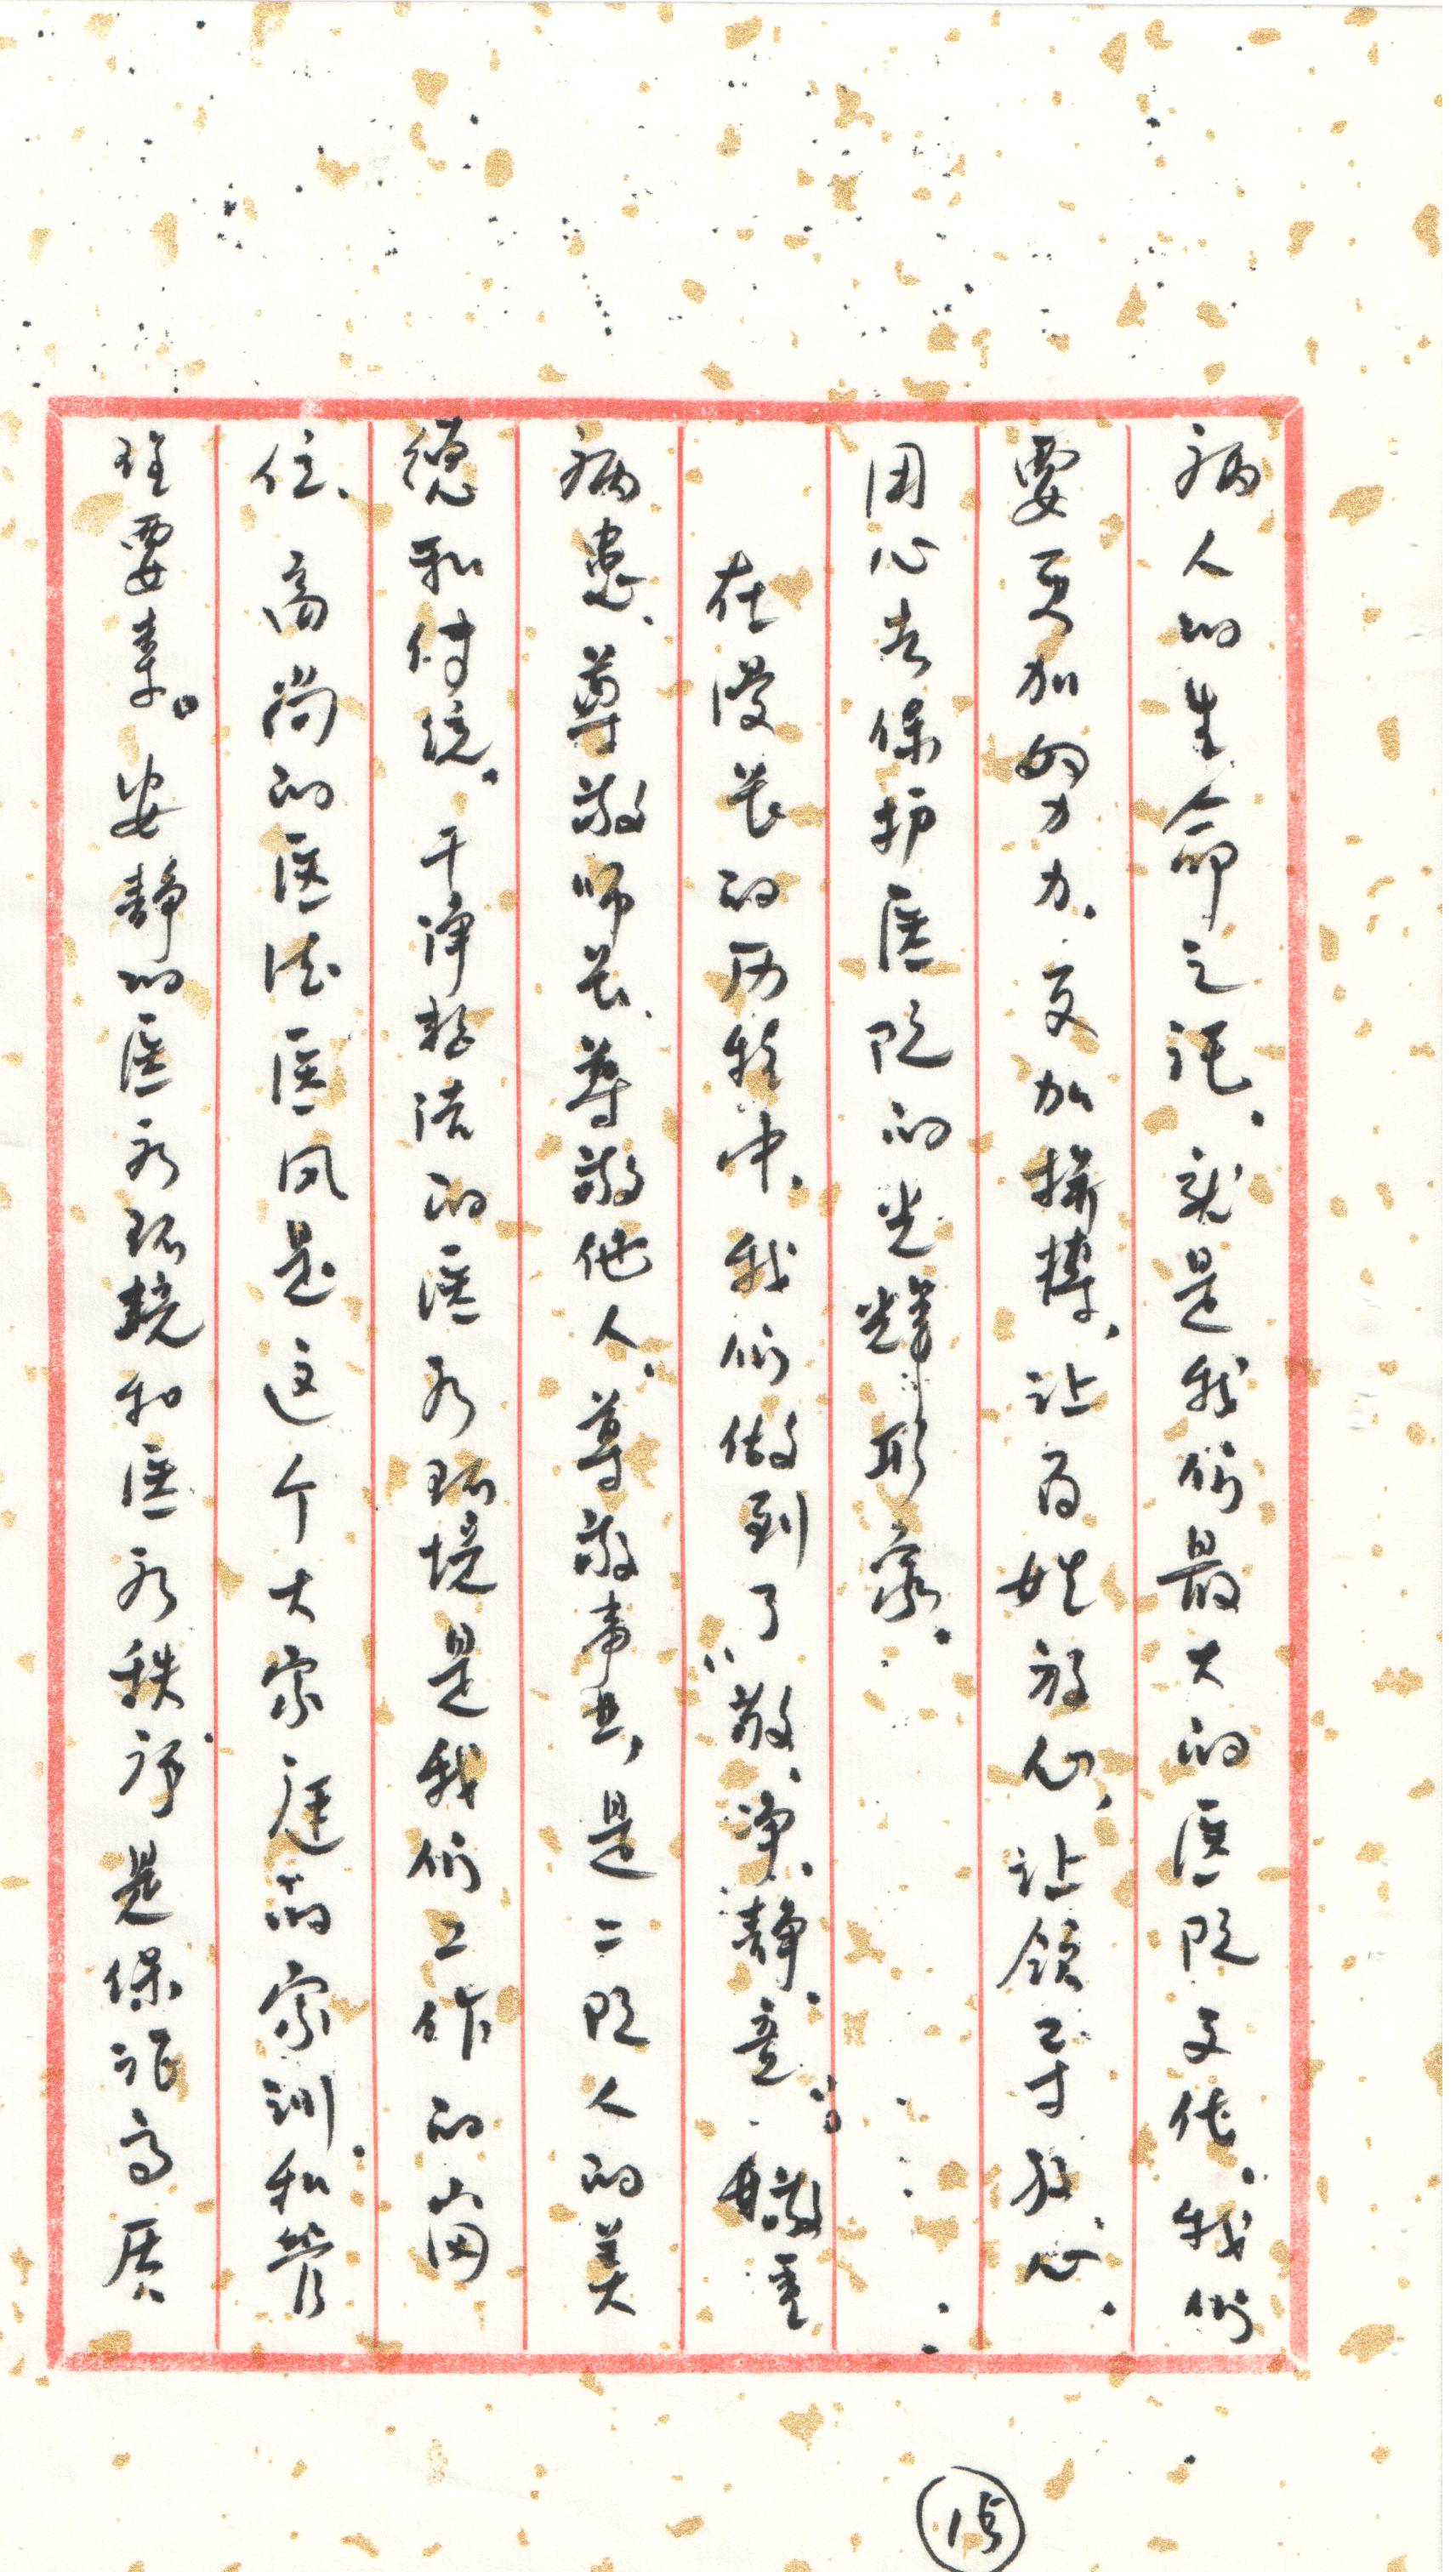 病人的生命之托，就是我们最大的医院文化，我们
要更加努力，更加拼搏，让百姓放心，让领导放心，
用心去保护医院的光辉形象。
在漫长的历程中，我们做到了“敬、净、静、竞”。敬重
病患、尊敬师长、尊敬他人、尊敬事业，是二院人的美
德和传统。干净整洁的医疗环境是我们工作的岗
位，高尚的医德医风是这个大家庭的家训和管
理要素。安静的医疗环境和医疗秩序是保证高质
15